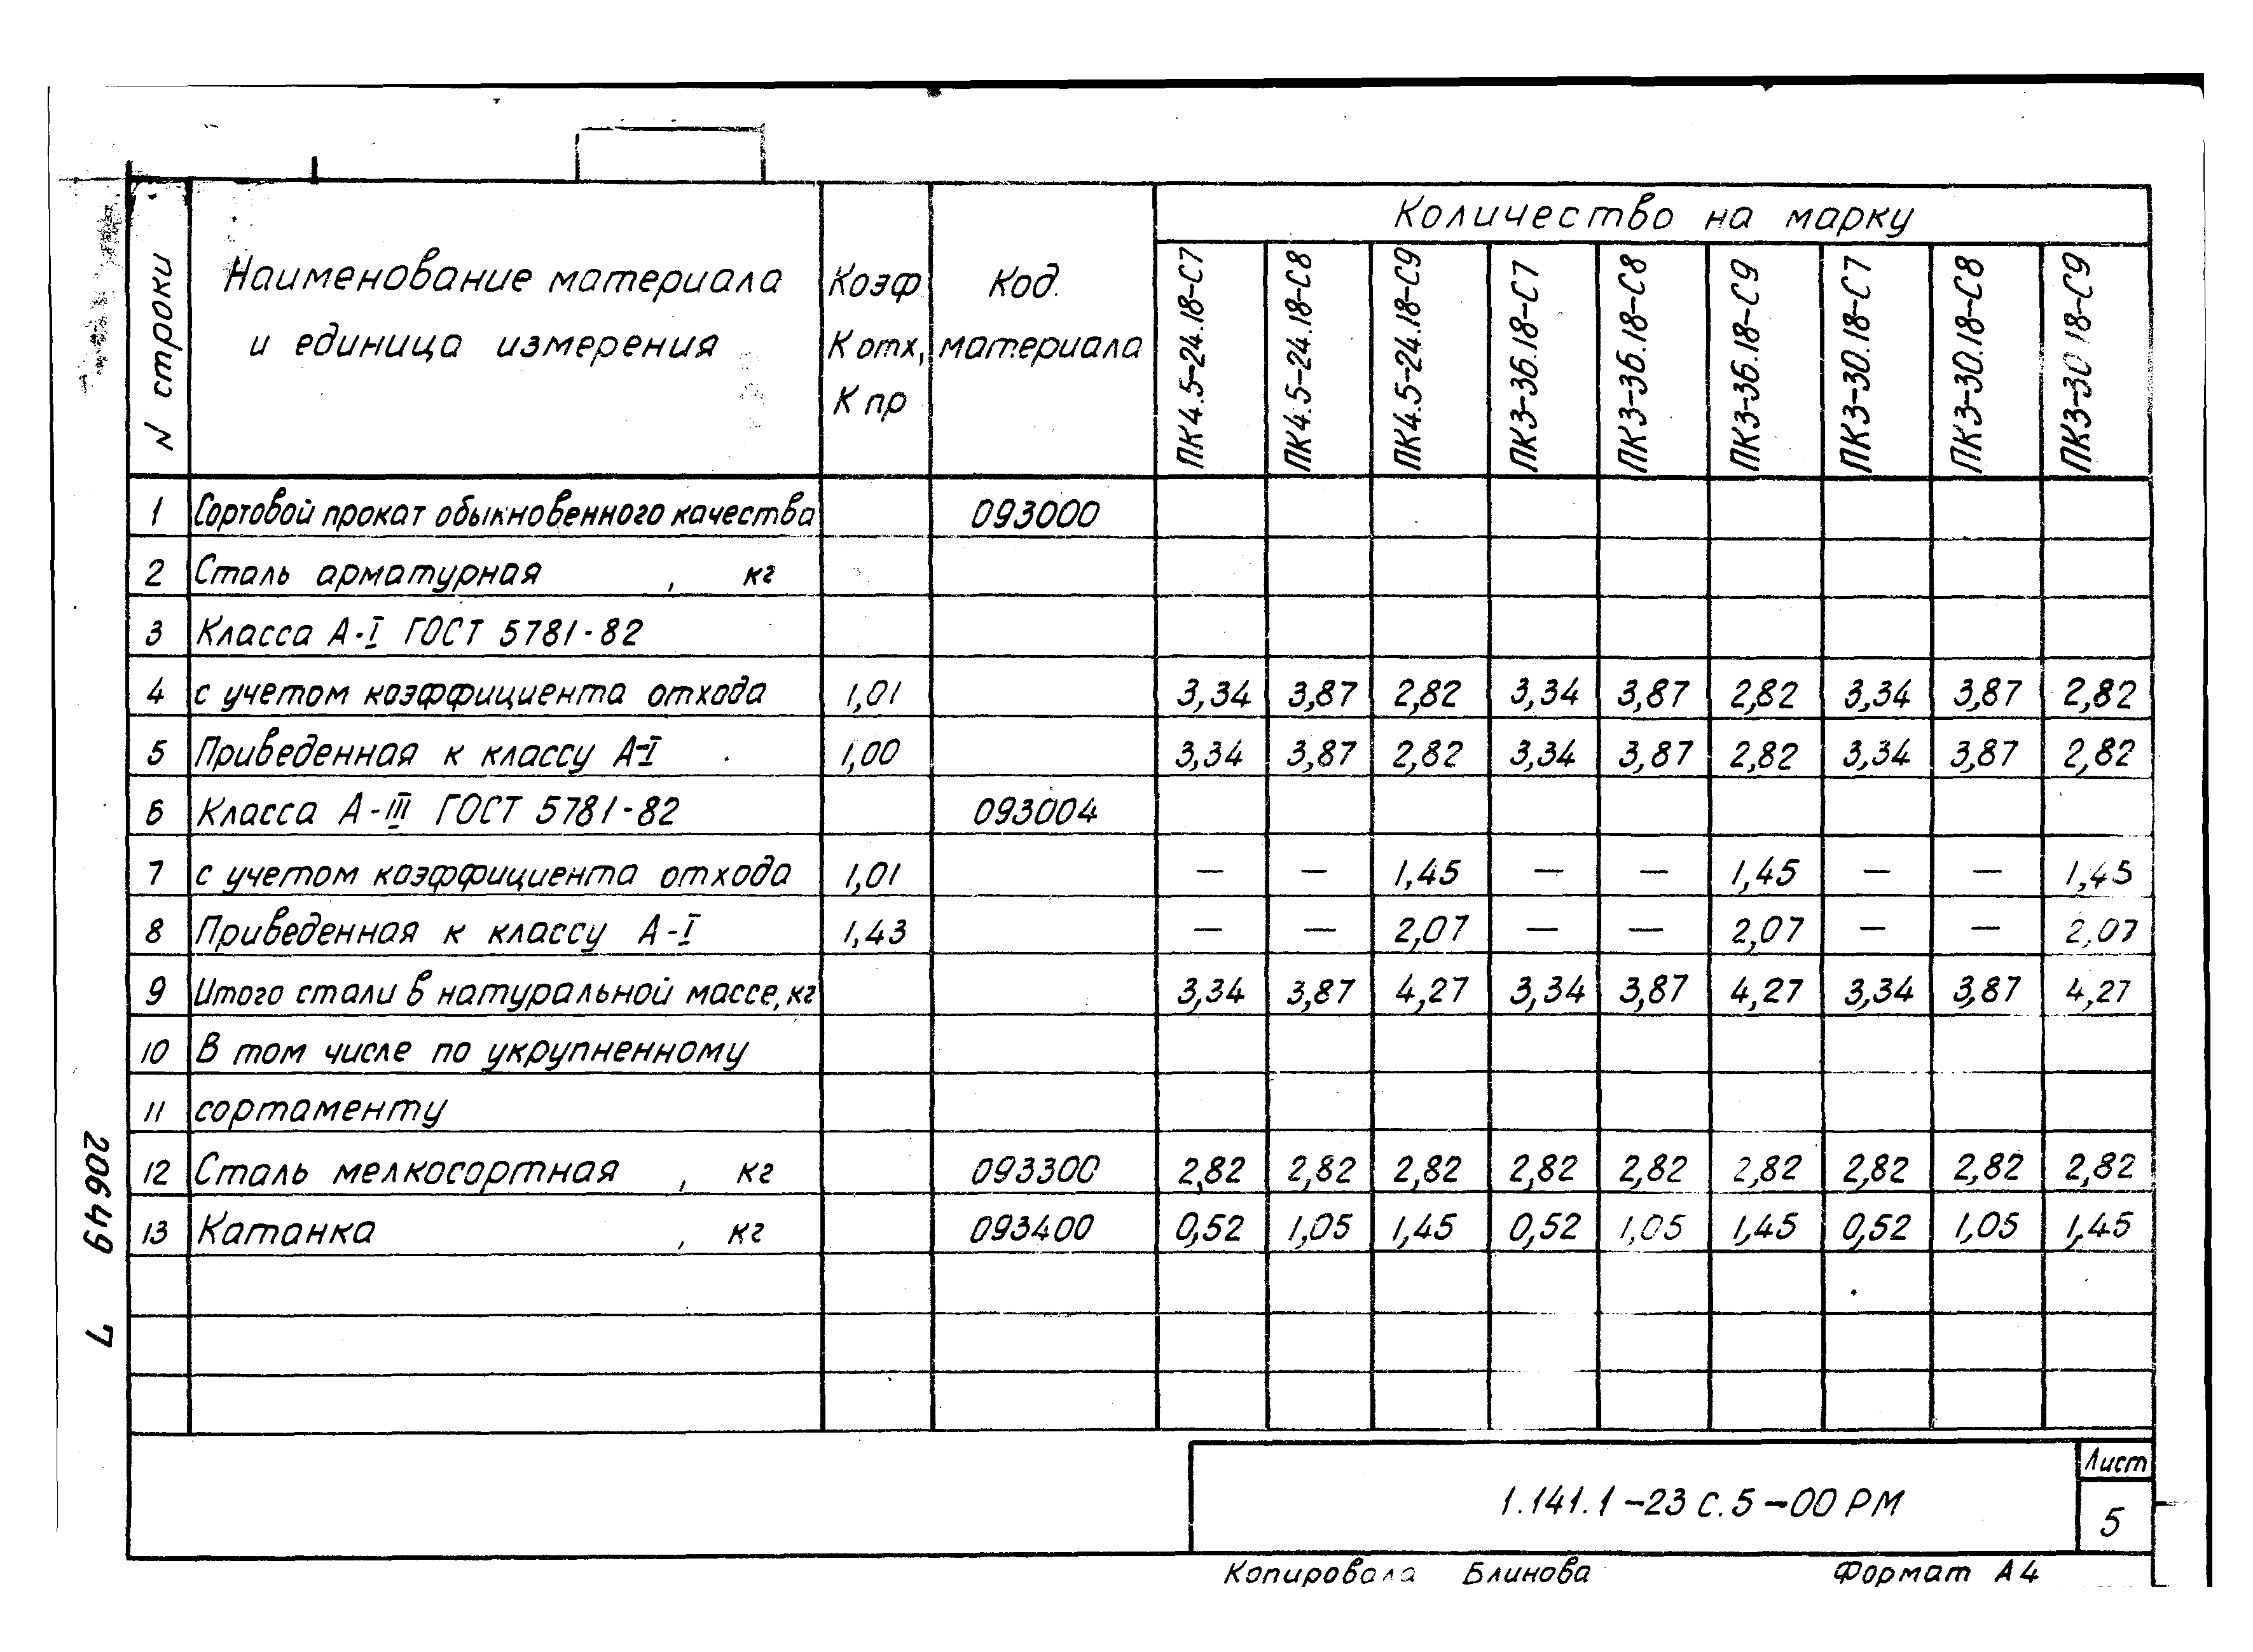 N строки
Наименование материала
и единица измерения
Коэф
К отх,
К пр
Код.
материала
Количество на марку
ПК4.5-24.18-С7
ПК4.5-24.18-С8
ПК4.5-24.18-С9
ПК3-36.18-С7
ПК3-36.18-С8
ПК3-36.18-С9
ПК3-30.18-С7
ПК3-30.18-С8
ПК3-30 18-С9
1 Сортовой прокат обыкновенного качества 093000
2 Сталь арматурная , кг
3 Класса А-I ГОСТ 5781-82
4 с учетом коэффициента отхода 1,01 3,34 3,87 2,82 3,34 3,87 2,82 3,34 3,87 2,82
5 Приведенная к классу А-I 1,00 3,34 3,87 2,82 3,34 3,87 2,82 3,34 3,87 2,82
6 Класса А-III ГОСТ 5781-82 093004
7 с учетом коэффициента отхода 1,01 — — 1,45 — — 1,45 — — 1,45
8 Приведенная к классу А-I 1,43 — — 2,07 — — 2,07 — — 2,07
9 Итого стали в натуральной массе, кг 3,34 3,87 4,27 3,34 3,87 4,27 3,34 3,87 4,27
10 В том числе по укрупненному
11 сортаменту
12 Сталь мелкосортная , кг 093300 2,82 2,82 2,82 2,82 2,82 2,82 2,82 2,82 2,82
13 Катанка , кг 093400 0,52 1,05 1,45 0,52 1,05 1,45 0,52 1,05 1,45
20649 7
1.141.1-23 с.5-00 РМ
Лист
5
Копировала Блинова Формат А4